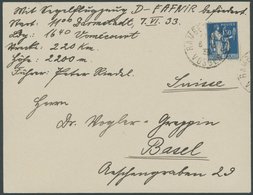 Mit Segelflugzeug D-FAFNIR befördert.
Start: 1106 Darmstadt, 7. VI. 33.
Ldg.: 1640 Vomécourt
Weite: 220 km.
Höhe: 2200 m.
Führer: Peter Riedel.
Suisse
Herrn
Dr. Vogler-Greppin
Basel
Aeschengraben 23